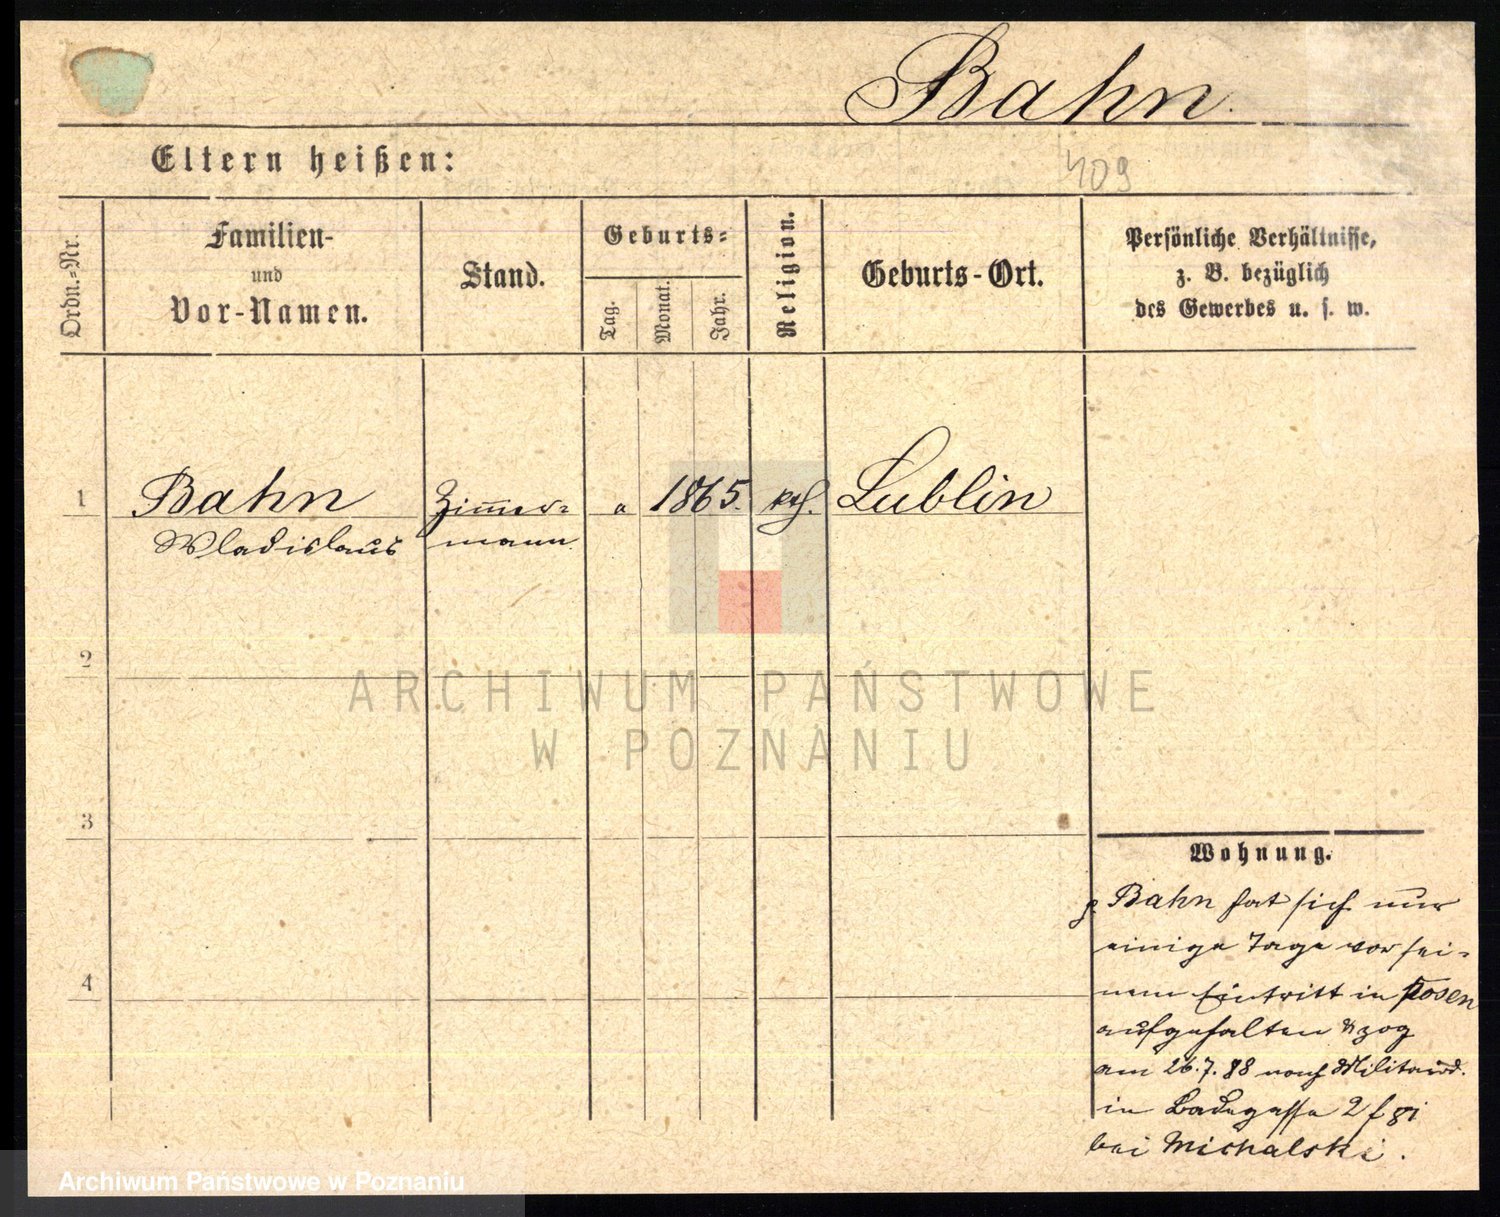 Bahn.
Eltern heißen:
409
Ordn.-Nr.
Familien-
und
Vor-Namen.
Stand.
Geburts-
Tag.
Monat.
Jahr.
Religion.
Geburts-Ort.
Persönliche Verhältnisse,
z. B. bezüglich
des Gewerbes u. s. w.
1 Bahn Zimmer- 1865. kth. Lublin
Wladislaus mann
2
ARCHIWUM PAŃSTWOWE
W POZNANIU
3
Wohnung.
p. Bahn hat sich nur
einige Tage vor sei-
4
nem Eintritt in Posen
aufgehalten & zog
am 26.7.88 nach
in Badegasse 2
bei Michalski.
Archiwum Państwowe w Poznaniu